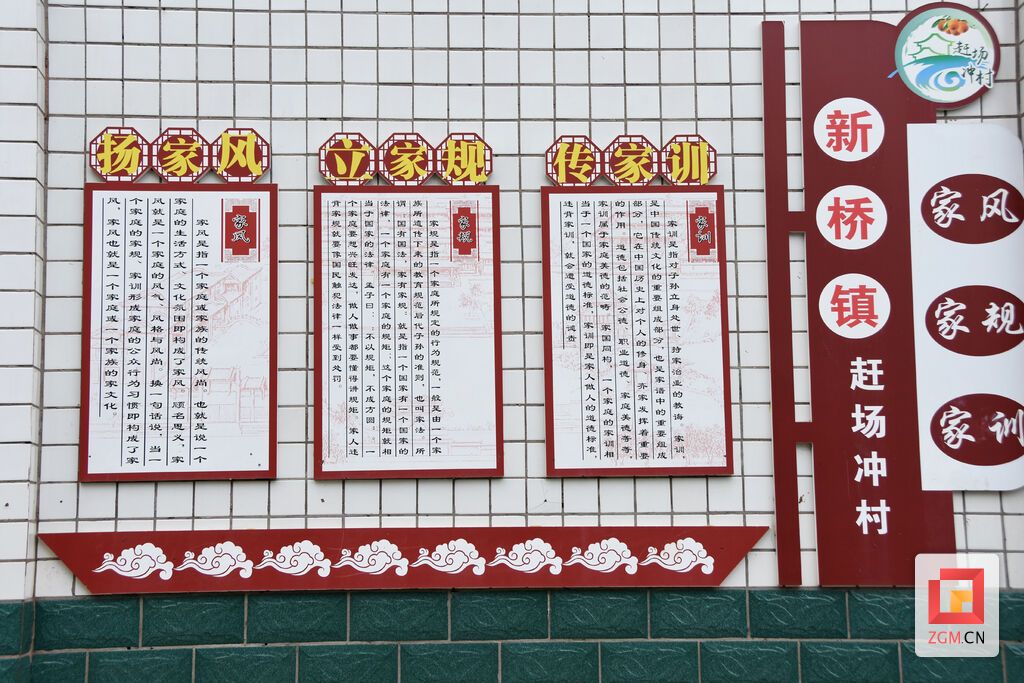 扬家风
家风
家风是指一个家庭或家族的传统风尚。也就是说一个
家庭的生活方式、文化氛围即构成了家风。顾名思义，家
风就是一个家庭的风气、风格与风尚。换一句话说，当一
个家庭的家规、家训形成家庭的公众行为习惯即构成了家
风，家风也就是一个家庭或一个家族的家文化。
立家规
家规
家规是指一个家庭所规定的行为规范，一般是由一个家
族所遗传下来的教育规范后代子孙的准则，也叫家法，所
谓：国有国法，家有家规。就是指一个国家有一个国家的
法律，一个家庭有一个家庭的规矩，这个家庭的规矩就相
当于国家的法律。孟子曰：：不以规矩，不成方圆：：一
个家庭要想兴旺发达，做人做事都要懂得讲规矩。家人违
背家规就要像国民触犯法律一样受到处罚。
传家训
家训
家训是指对子孙立身处世、持家治业的教诲。家训
是中国传统文化的重要组成部分，也是家谱中的重要组成
部分，它在中国历史上对个人的修身、齐家发挥着重要
的作用。道德包括社会公德、职业道德、家庭美德等，
家训属于家庭美德的范畴。家国同构，一个家庭的家训相
当于一个国家的道德标准，家训即是家人做人的道德标准，
违背家训，就会遭受道德的谴责
赶场
冲村
新桥镇
赶场冲村
家风
家规
家训
ZGM.CN